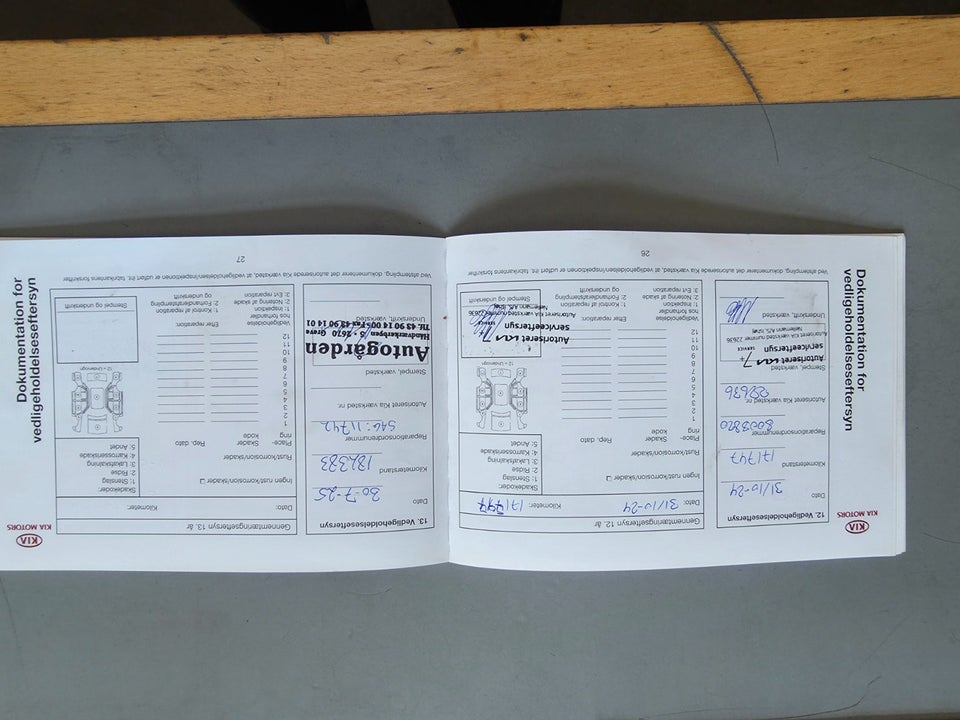 Dokumentation for
vedligeholdelseseftersyn
KIA
KIA MOTORS
12. Vedligeholdelseseftersyn
Dato
31/10-24
Kilometerstand
171747
Reparationsordrenummer
8008820
Autoriseret Kia værksted nr.
22636
Stempel, værksted
Autoriseret
serviceeftersyn
SERVICE
Underskrift, værksted
Gennemtæringseftersyn: 12. år
Dato: 31/10-24
Kilometer: 171747
Ingen rustskader/skader:
Rust/korrosion/skader
Skadekoder:
1: Stenslag
2: Ridse
3: Lakafskalning
4: Karrosseriskade
5: Andet
Place-
ring
Skader
kode
Rep. dato
1
2
3
4
5
6
7
8
9
10
11
12
12 = Undervogn
Vedligeholdelse
hos forhandler
Efter reparation
1: Inspektion
2: Notering af skade
3: Evt reparation
1: Kontrol af reparation
2: Forhandlerstempling
og underskrift
Autoriseret
serviceeftersyn
SERVICE
Stempel og underskrift
Ved afstempling, dokumenterer det autoriserede Kia værksted, at vedligeholdelsen/inspektionen er udført iht. fabrikantens forskrifter
26
Dokumentation for
vedligeholdelseseftersyn
KIA
KIA MOTORS
13. Vedligeholdelseseftersyn
Dato
30-7-25
Kilometerstand
182383
Reparationsordrenummer
Autoriseret Kia værksted nr.
Stempel, værksted
Autogården
Håndværkerbyen 2670 Greve
Tlf. 43 90 14 00 · Fax 43 90 14 01
Underskrift, værksted
Gennemtæringseftersyn: 13. år
Dato:
Kilometer:
Rust/korrosion/skader
Skadekoder:
1: Stenslag
2: Ridse
3: Lakafskalning
4: Karrosseriskade
5: Andet
Place-
ring
Skader
kode
Rep. dato
1
2
3
4
5
6
7
8
9
10
11
12
12 = Undervogn
Vedligeholdelse
hos forhandler
Efter reparation
1: Inspektion
2: Notering af skade
3: Evt reparation
1: Kontrol af reparation
2: Forhandlerstempling
og underskrift
Stempel og underskrift
Ved afstempling, dokumenterer det autoriserede Kia værksted, at vedligeholdelsen/inspektionen er udført iht. fabrikantens forskrifter
27